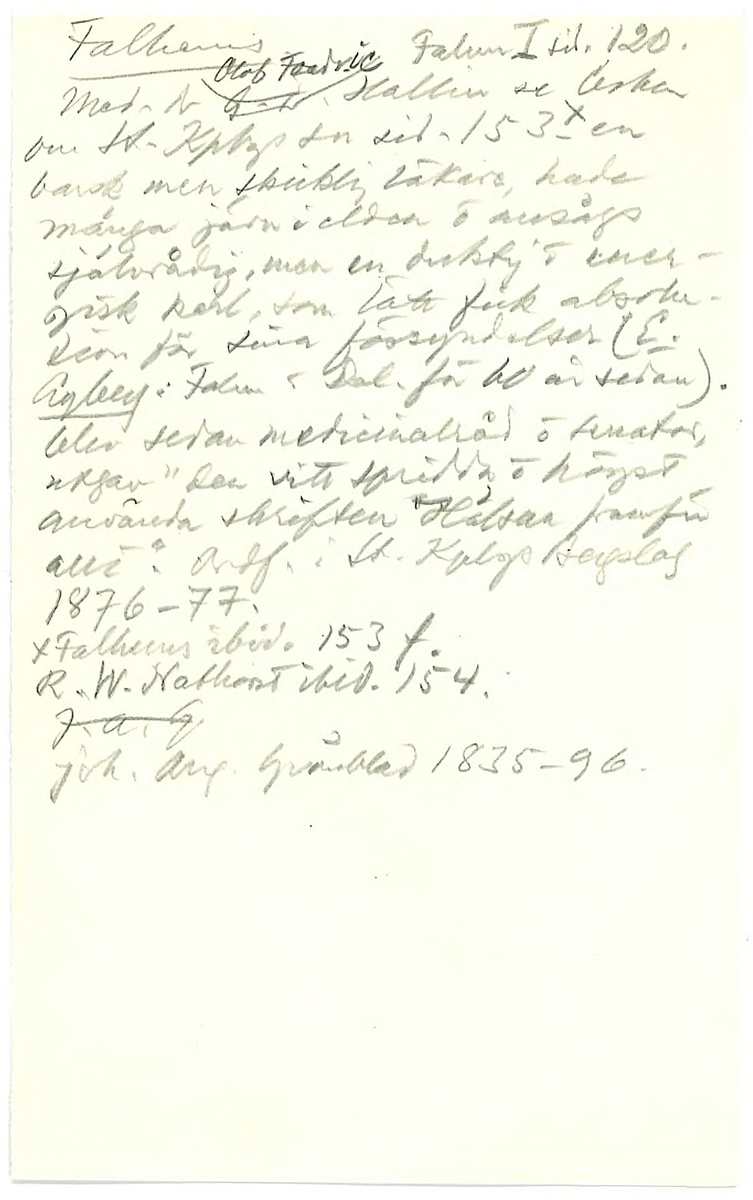 Falhems Falun I sid. 120.
Olof Fredric
Med. dr Hallin se
om St. Kpbgs sid. 153 x en
barsk men skicklig läkare, hade
många järn i elden o ansågs
självrådig, men en duktig o ener-
gisk karl, som lätt fick absolu-
tion för sina försyndelser (E.
: Falun i Dal. för 60 år sedan).
blev sedan medicinalråd o senator,
utgav "Den vitt spridda o högst
använda skriften "Hälsan framför
allt". Ordf. i St. Kpbgs Bergslag
1876-77.
x Falhems ibid. 153 f.
R. W. Nathorst ibid. 154.
J. A. G
Joh. Aug. Grönblad 1835-96.